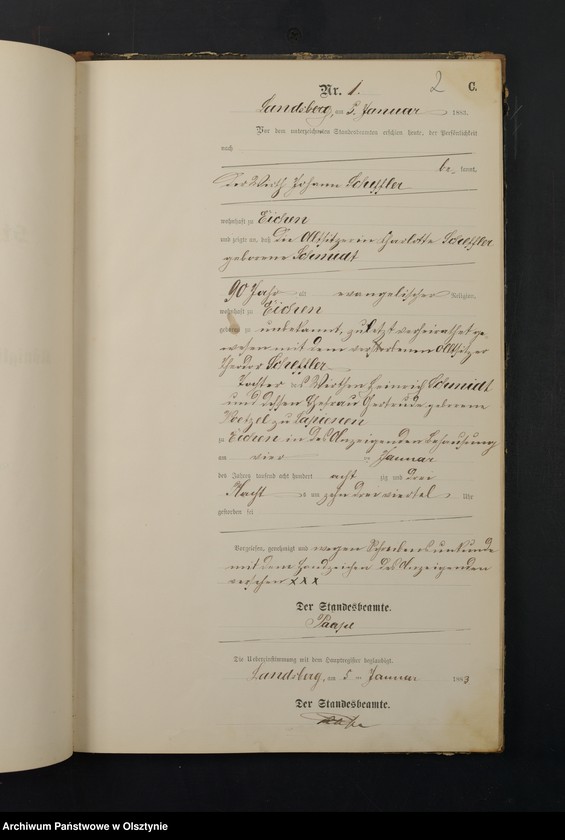 2
Nr. 1. C.
Landsberg, am 5. Januar 1883.
Vor dem unterzeichneten Standesbeamten erschien heute, der Persönlichkeit
nach
be kannt,
der Wirth Johann Scheffler
wohnhaft zu Eichen
und zeigte an, daß die Altsitzerin Charlotte Scheffler
geborene Schmidt
90 Jahr alt evangelischer Religion,
wohnhaft zu Eichen
geboren zu unbekannt, zuletzt verheirathet ge-
wesen mit dem verstorbenen Altsitzer
Theodor Scheffler
Tochter des Wirthen Heinrich Schmidt
und dessen Ehefrau Gertrude geborene
zu
zu Eichen in des Anzeigenden Behausung
am vier ten Januar
des Jahres tausend acht hundert acht zig und drei
Nacht s um zehn drei viertel Uhr
gestorben sei
Vorgelesen, genehmigt und wegen Schreibensunkunde
mit dem Handzeichen des Anzeigenden
versehen XXX
Der Standesbeamte.
Die Uebereinstimmung mit dem Hauptregister beglaubigt.
Landsberg, am 5 ten Januar 1883
Der Standesbeamte.
Archiwum Państwowe w Olsztynie